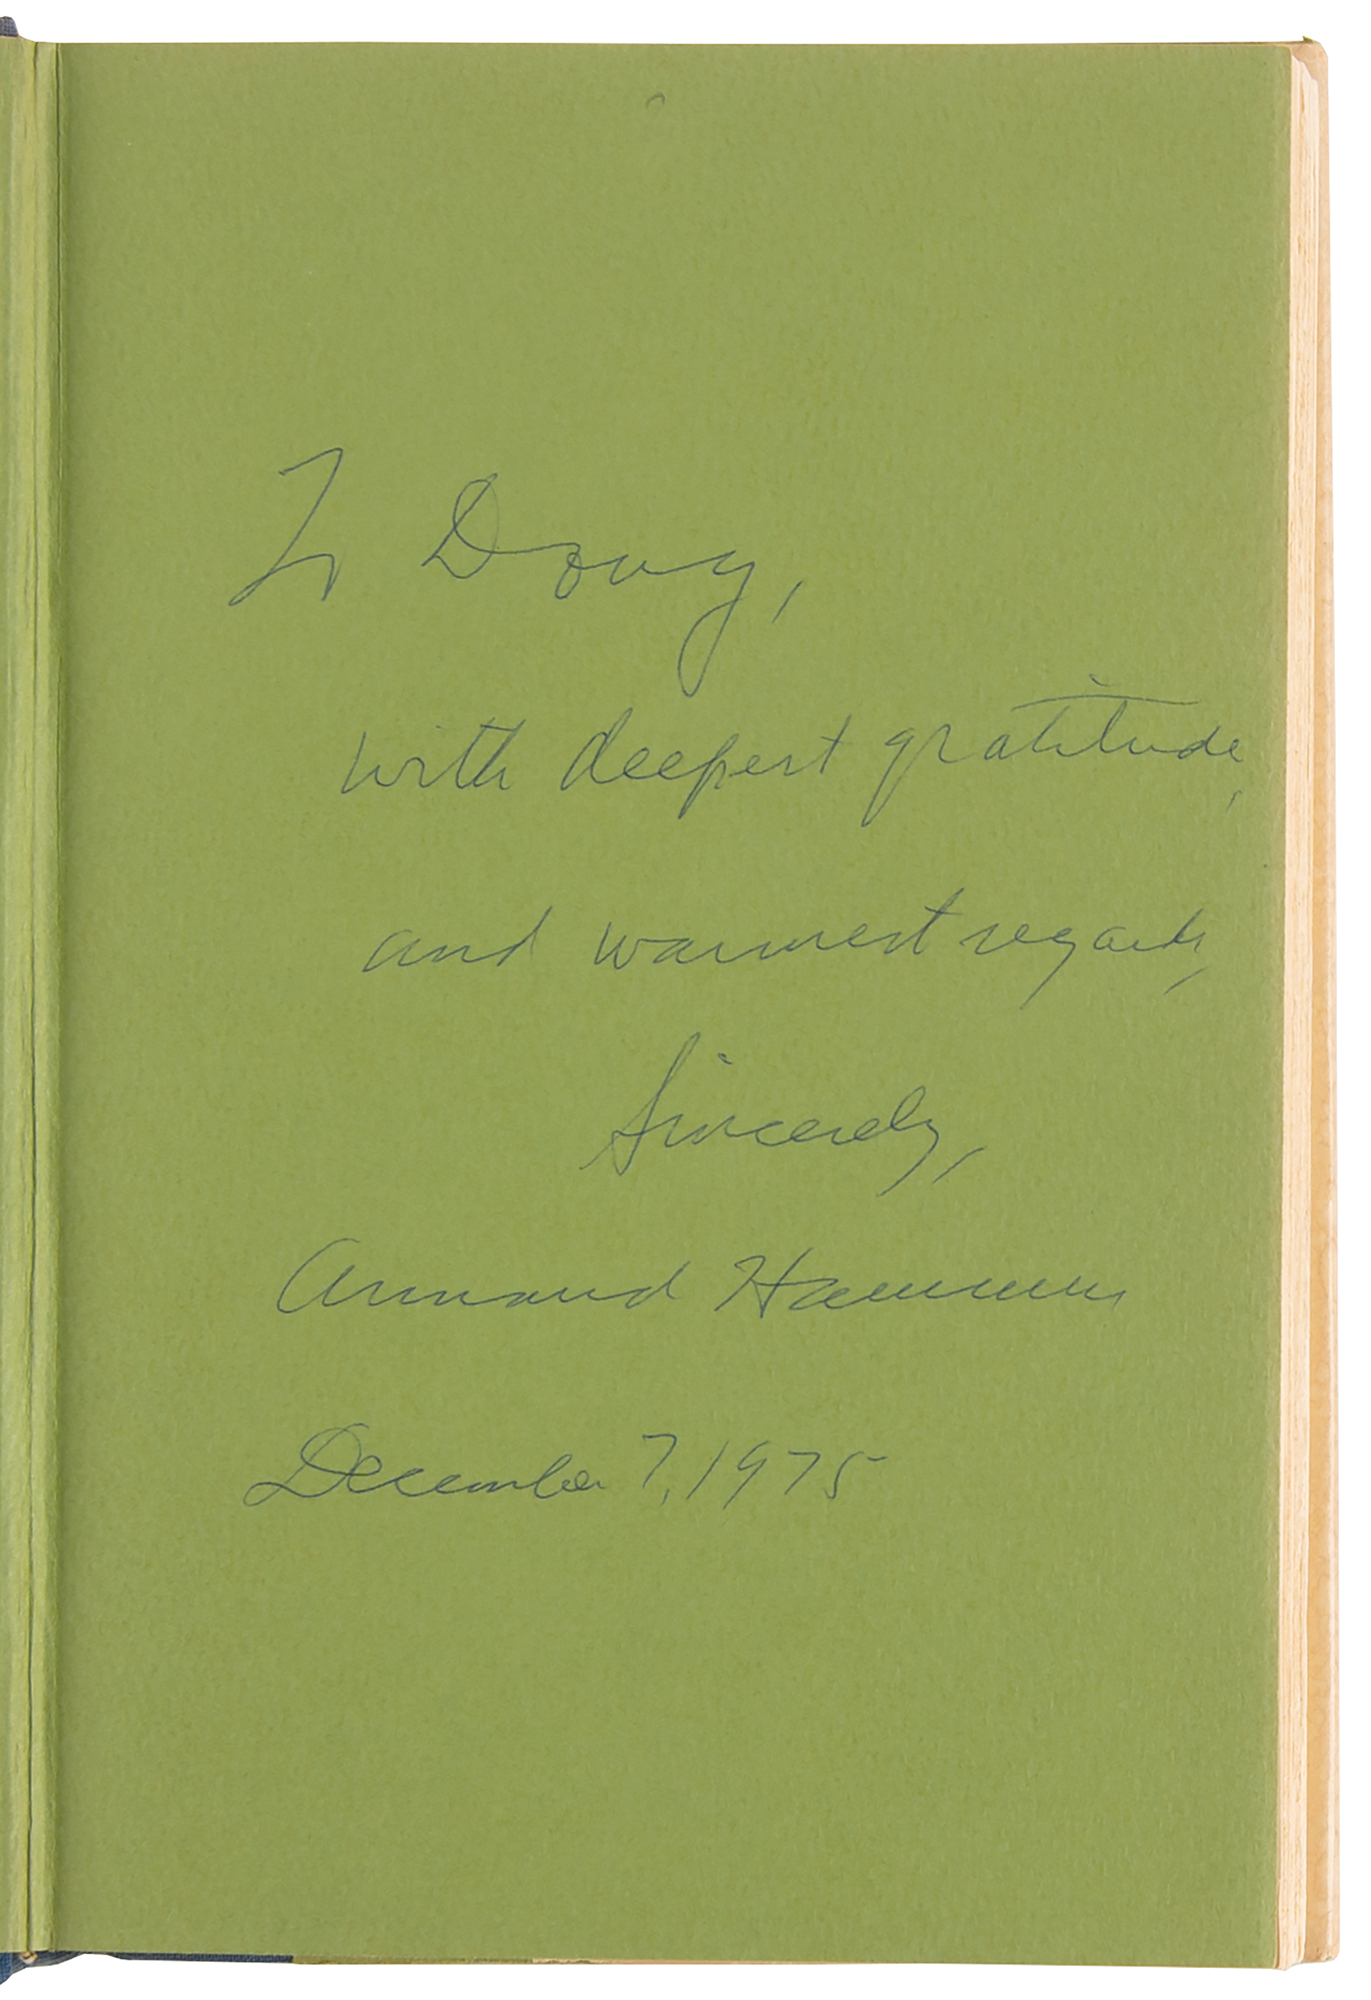 To Doug,
with deepest gratitude,
and warmest regards,
Sincerely,
Armand Hammer
December 7, 1975